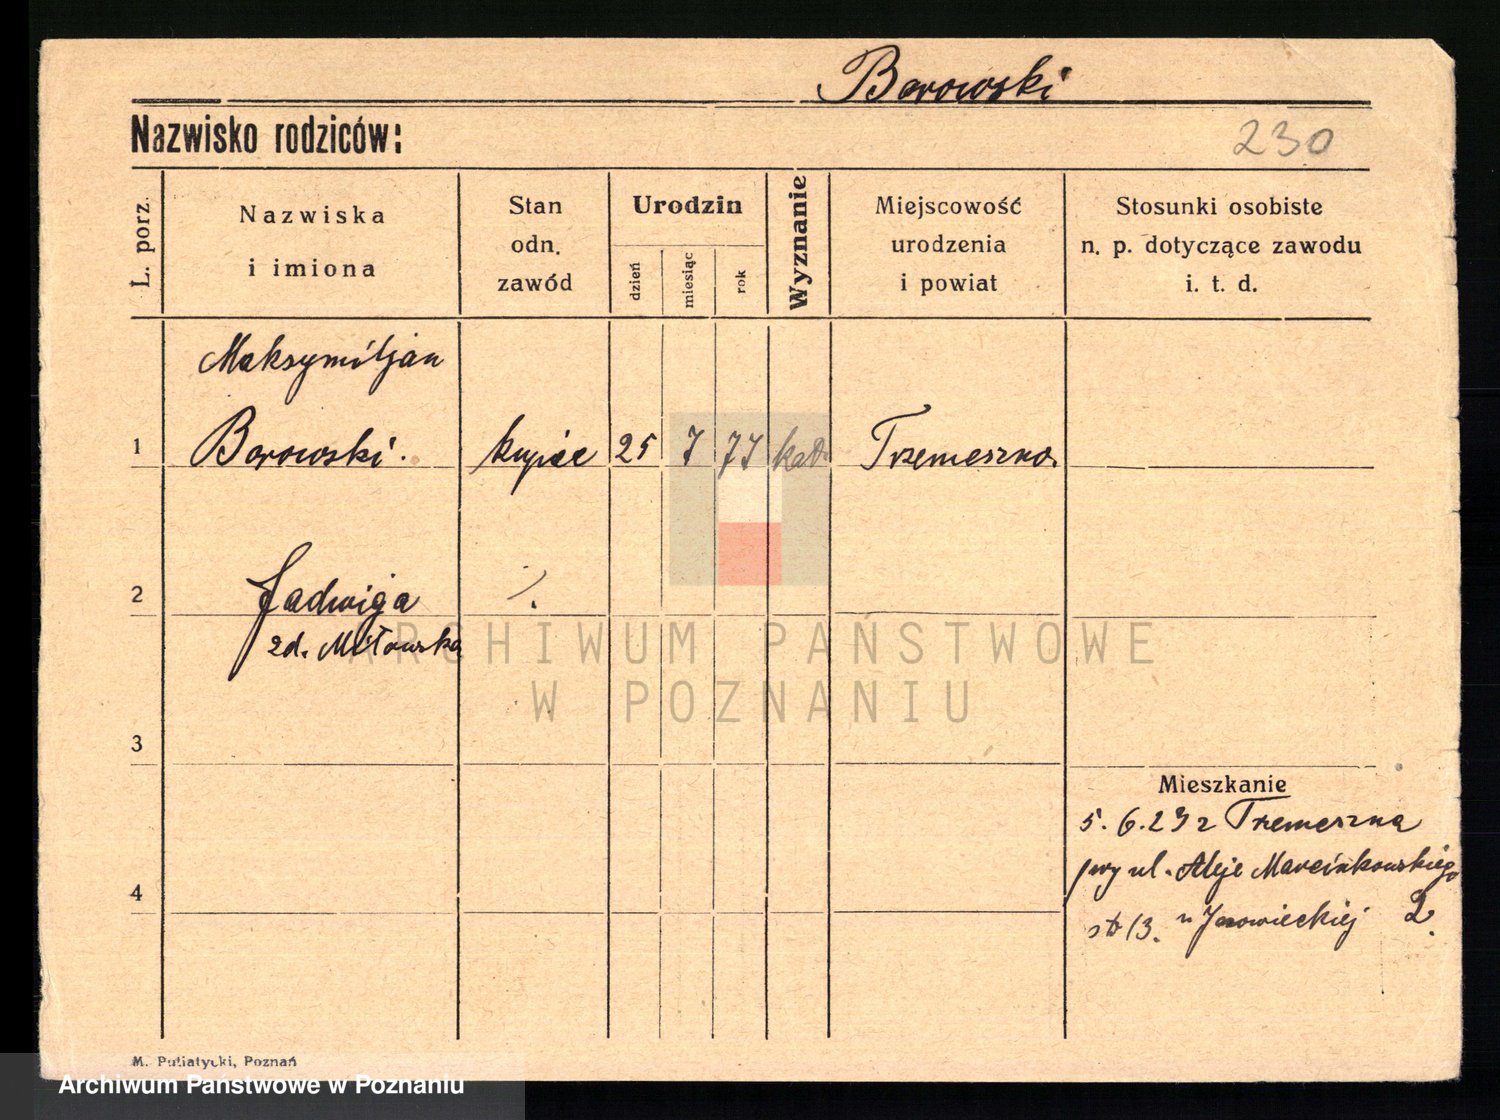 Borowski
Nazwisko rodziców:
230
L. porz.
Nazwiska
i imiona
Stan
odn.
zawód
Urodzin
dzień
miesiąc
rok
Wyznanie
Miejscowość
urodzenia
i powiat
Stosunki osobiste
n. p. dotyczące zawodu
i. t. d.
Maksymiljan
1 Borowski. kupiec 25 7 77 kat. Trzemeszno
2 Jadwiga
zd. Miłowska
ARCHIWUM PAŃSTWOWE
W POZNANIU
3
Mieszkanie
5. 6. 23 z Trzemeszna
przy ul. Aleje Marcinkowskiego
4
13. u 2.
M. Putiatycki, Poznań
Archiwum Państwowe w Poznaniu